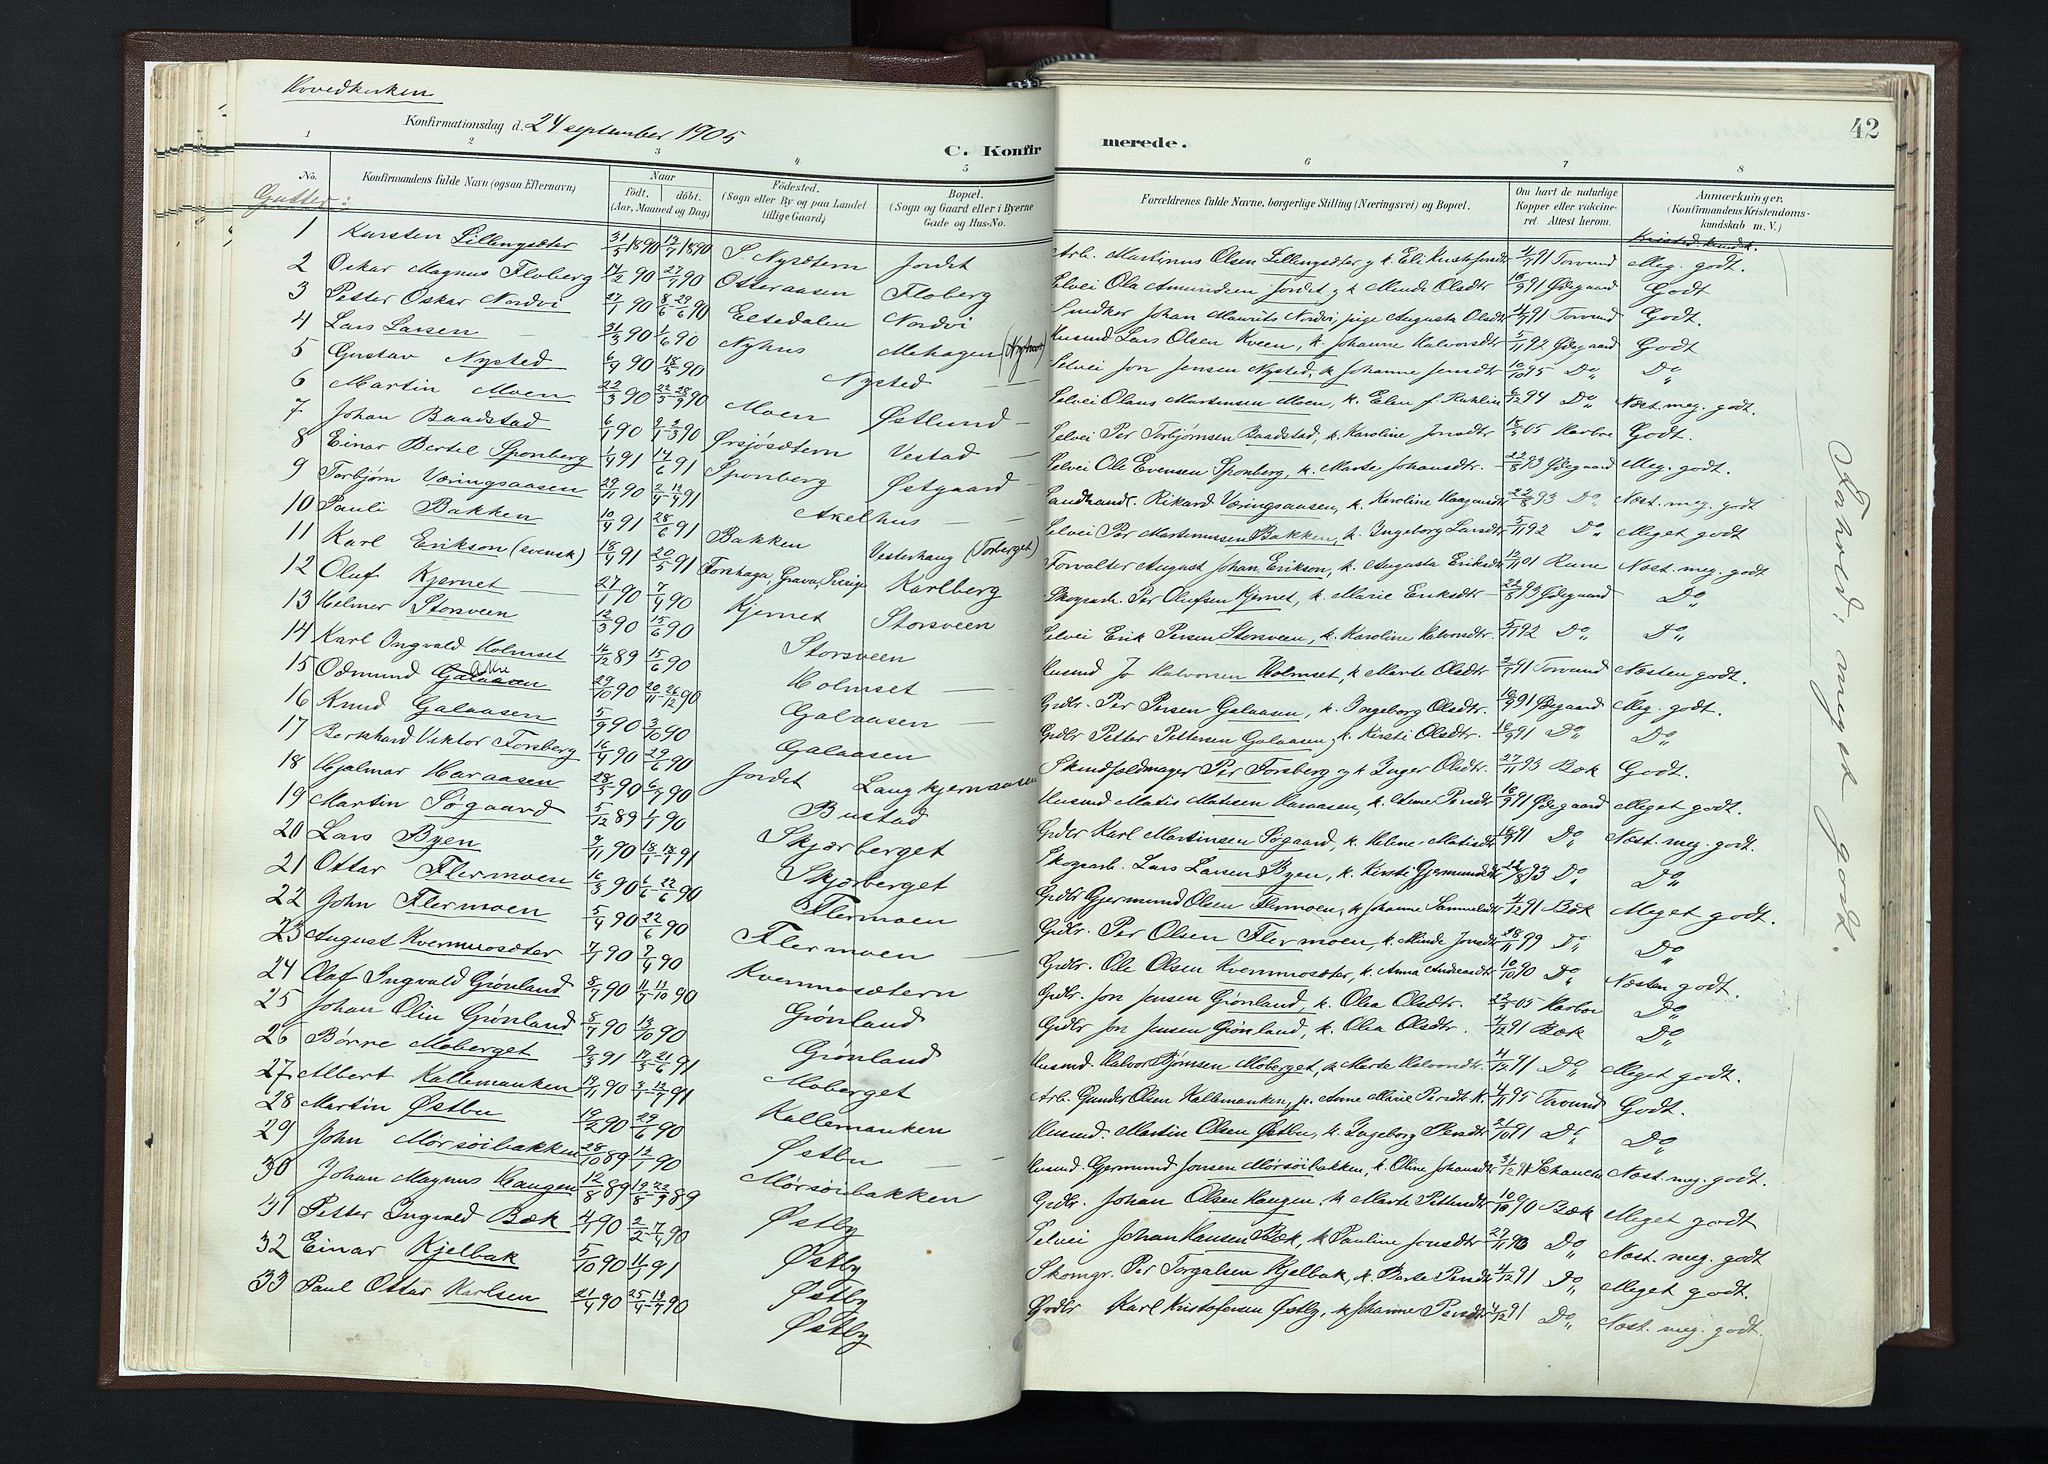 Hovedkirken
Konfirmationsdag d. 24 september 1905
C. Konfirmerede.
42
1 2 3 4 5 6 7 8
No.
Konfirmandens fulde Navn (ogsaa Efternavn)
Naar
født. døbt.
(Aar, Maaned og Dag)
Fødested.
(Sogn eller By og paa Landet tillige Gaard)
Bopæl.
(Sogn og Gaard eller i Byerne Gade og Hus-No.
Forældrenes fulde Navne, borgerlige Stilling (Næringsvei) og Bopæl.
Om havt de naturlige Kopper eller vaccineret. Attest herom.
Anmærkninger.
(Konfirmandens Kristendomskundskab m. V.)
Gutter:
1 Karsten Lillengsæter 31/5 1890 S. Nysætern Jordet Arb. Martinus Olsen Lillengsæter Torvund Meg. godt.
2 Oskar Magnus Floberg 90 27/7 90 Osteraasen Floberg Selvei Ola Amundsen Jordet og k Minde Olsdtr 91 Ødegaard Godt
3 Petter Oskar Nordvi 90 8/6 - 29/6 90 Elsedalen Nordvi Snedker Johan Maurits Nordvi, pige Augusta Olsdtr 91 Torvund Godt.
4 Lars Larsen 31/3 90 1/6 90 Nyhus Mehagen (Nyhus) Husmd Lars Olsen Kveen, k. Johanne Halvorsdtr 5/11 92 Ødegaard Godt
5 Gustav Nysted 6/4 90 18/5 90 Nysted Selvei Jon Jensen Nysted, k Johanne Jensdtr 10/10 95 Do Do
6 Martin Moen 22/3 90 90 Moen Østlund Selvei Olaus Martinsen Moen, k. Elen 94 Do Næst. meg. godt.
7 Johan Baadstad 6/1 90 2/3 90 Ørsjøsætern Vestad Selvei Per Torbjørnsen Baadstad, k. Karoline Jonsdtr 05 Harboe Godt.
8 Einar Bertil Sponberg 1/4 91 14/6 91 Sponberg Østgaard Selvei Ole Evensen Sponberg, k. Marte Johansdtr. 93 Ødegaard Meg. godt.
9 Torbjørn Væringsaasen 29/11 90 91 Axelhus Landhandl. Rikard Væringsaasen, k. Karoline Haagensdtr 93 Do Næst. meg. godt
10 Pauli Bakken 10/4 91 28/6 91 Bakken Vesterhaug (Torberget) Selvei Per Martinussen Bakken, k Ingeborg Larsdtr 5/11 92 Do Meget godt
11 Karl Erikson (svensk) 18/4 91 20/5 91 Forshaga, Grava, Karlberg Forvalter August Johan Erikson, k. Augusta Eriksdtr 01 Rune Næst. meg. godt
12 Oluf Kjernet 27/1 90 7/4 90 Kjernet Storsveen Skogarb. Per Olufsen Kjernet, k. Marie Eriksdtr 93 Ødegaard Do
13 Helmer Storsveen 12/3 90 15/6 90 Storsveen Selvei Erik Persen Storsveen, k. Karoline Halvorsdtr. 5/11 92 Do Do
14 Karl Ongvald Holmset 89 15/6 90 Holmset Husmd Jo Halvorsen Holmset, k Marte Olsdtr 91 Torvund Næsten godt.
15 Odmund Galaasen 29/10 90 20/11 - 26/12 90 Galaasen Grdbr. Per Persen Galaasen, k. Ingeborg Olsdtr. 91 Ødegaard Meg. godt.
16 Knud Galaasen 5/9 90 3/10 90 Galaasen Grdbr Petter Pettersen Galaasen, k Kirsti Olsdtr. 91 Do Do
17 Bernhard Viktor Forsberg 16/4 90 29/6 90 Jordet Langkjernaasen Skindfoldmager Per Forsberg og k Inger Olsdtr. 27/11 93 Bæk Godt.
18 Hjalmar Haraasen 28/3 90 6/7 90 Bustad Husmd Matis Matisen Haraasen, k. Anne Persdtr 91 Ødegaard Meget godt.
19 Martin Søgaard 5/12 89 90 Skjærberget Grdbr Karl Martinsen Søgaard, k Helene Matisdtr 91 Do Næst. meg. godt.
20 Lars Byen 9/11 90 91 Skjærberget Skogarb. Lars Larsen Byen, k Kirsti Gjermundsdtr 93 Do Do
21 Ottar Flermoen 16/3 90 6/6 22/6 90 Flermoen Grdbr Gjermund Olsen Flermoen, k Johanne Samuelsdtr 4/12 91 Bæk Meget godt.
22 John Flermoen 5/4 90 22/6 90 Flermoen Grdbr. Per Olsen Flermoen, k. Minde Jonsdtr 28/11 99 Do Do
23 August Kvernmosæter 90 7/4 90 Kvernmosætern Grdbr. Ole Olsen Kvernmosæter, k. Anna Andreasdtr 10/10 90 Do Næsten godt.
24 Olaf Ingvald Grønland 8/7 90 90 Grønland Grdbr. Jon Jensen Grønland, k. Olea Olsdtr. 05 Harboe Do
25 Johan Olin Grønland 8/7 90 90 Grønland Grdbr Jon Jensen Grønland, k. Olea Olsdtr. 4/12 91 Bæk Do
26 Børre Moberget 9/3 91 21/6 91 Moberget Husmd. Halvor Bjørnsen Moberget, k Marte Halvorsdtr 4/12 91 Do Meget godt.
27 Albert Kallemanken 90 91 Kallemanken Arb. Gunder Olsen Kallemanken, p. Anne Marie Persdtr K. 4/11 95 Torvund Godt.
28 Martin Østbu 90 29/6 90 Østbu Husmd. Martin Olsen Østbu, k. Ingeborg Persdtr 91 Do Do
29 John Mørsøibakken 28/10 89 90 Mørsøibakken Husmd. Gjermund Jonsen Mørsøibakken, k. Oline Johansdtr 31/12 91 Schancke Næst. meg. godt.
30 Johan Magnus Haugen 12/8 89 89 Østby Grdbr. Johan Olsen Haugen, k Marte Pettersdtr 10/10 90 Bæk Meget godt
31 Petter Ingvald Bæk 90 2/2 - 7/4 90 Østby Selvei Johan Hansen Bæk, k Pauline Jonsdtr 90 Do Næst. meg. godt
32 Einar Kjelbak 5/10 90 91 Østby Skomgr. Per Torgalsen Kjelbak, k. Berte Persdtr 4/12 91 Do Meget godt.
33 Paul Ottar Karlsen 21/4 90 90 Østby Grdbr Karl Kristofersen Østby, k Johanne Persdtr 4/12 91 Do Næst. meg. godt.
Forhold: meget godt.